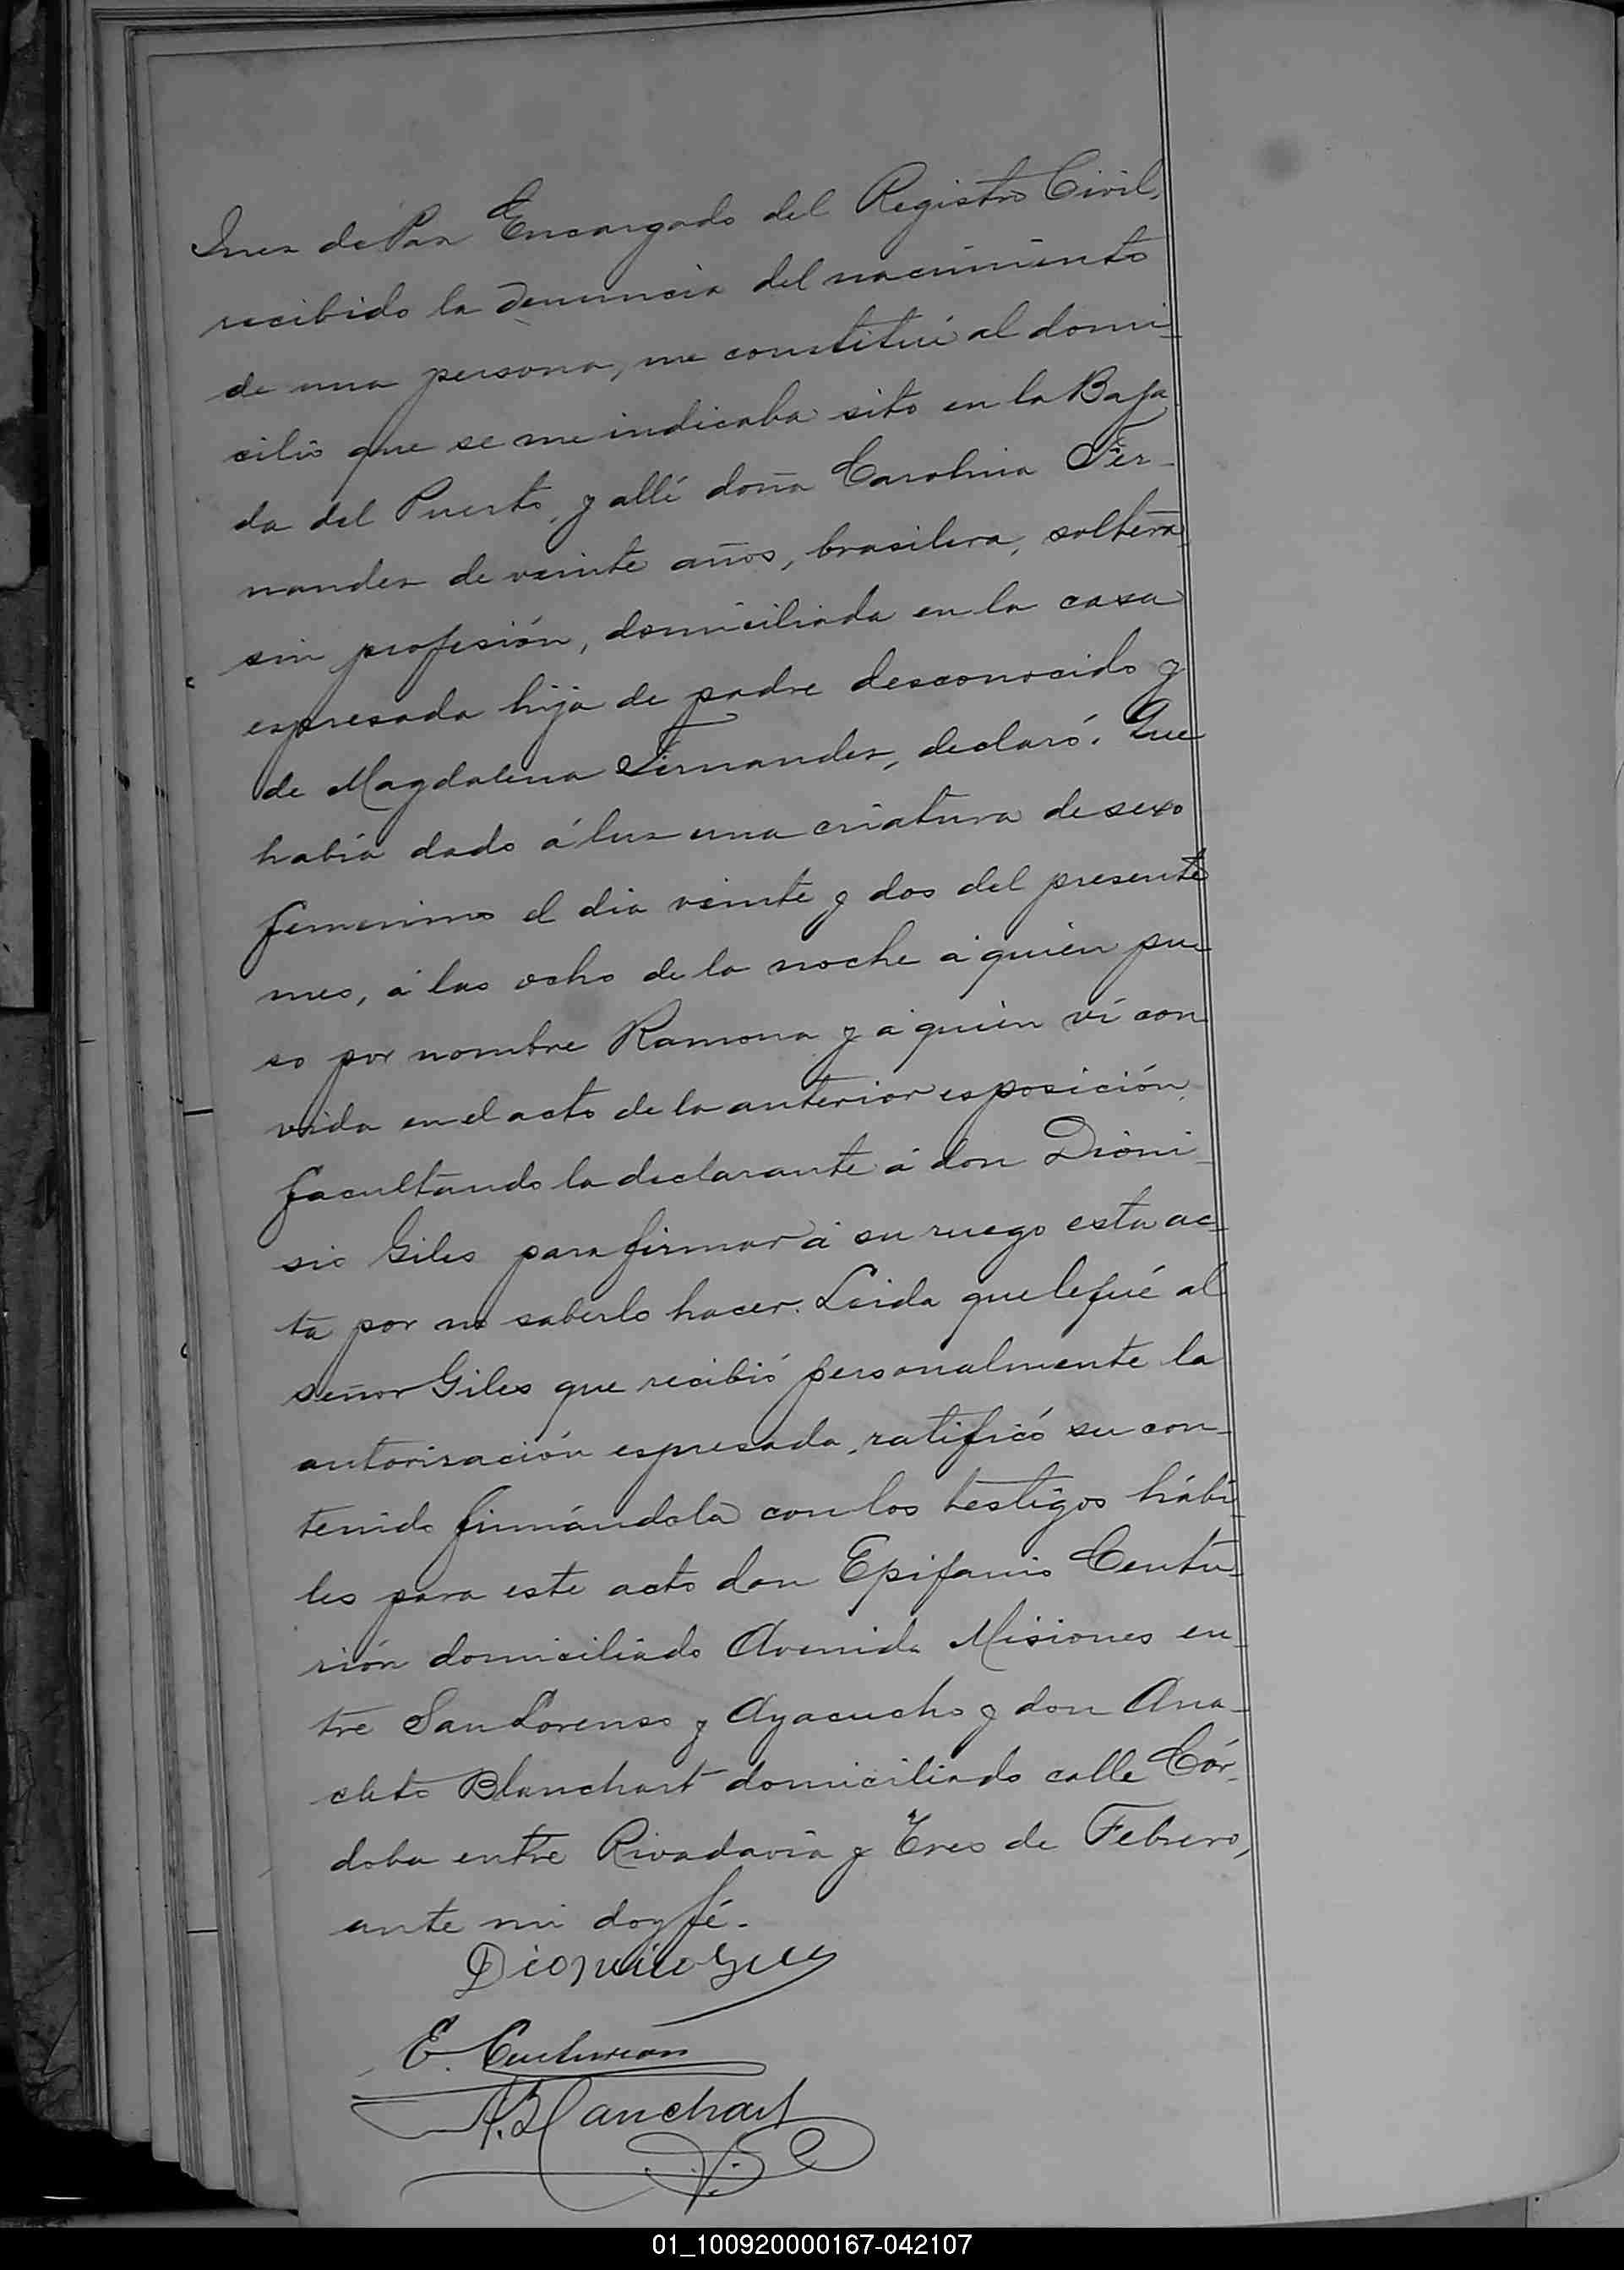 Juez de Paz Encargado del Registro Civil,
recibido la denuncia del nacimiento
de una persona, me constituí al domi-
cilio que se me indicaba sito en la Baja
da del Puerto, y allí doña Carolina Fer-
nandez de veinte años, brasilera, soltera,
sin profesión, domiciliada en la casa
espresada hija de padre desconocido y
de Magdalena Fernandez, declaró: Que
había dado á luz una criatura de sexo
femenino el dia veinte y dos del presente
mes, á las ocho de la noche á quien pu-
so por nombre Ramona y á quien ví con
vida en el acto de la anterior esposición,
facultando la declarante á don Dioni-
sio Giles para firmar á su ruego esta ac-
ta por no saberlo hacer. Leida que le fué al
señor Giles que recibió personalmente la
autorización espresada, ratificó su con-
tenido firmándola con los testigos hábi-
les para este acto don Epifanio Centu-
rión domiciliado Avenida Misiones en-
tre San Lorenso y Ayacucho y don Ana-
cleto Blanchart domiciliado calle Cór-
doba entre Rivadavia y Tres de Febrero,
ante mi doy fé.
Dionicio Giles
E. Centurion
A. Blanchart
01_100920000167-042107